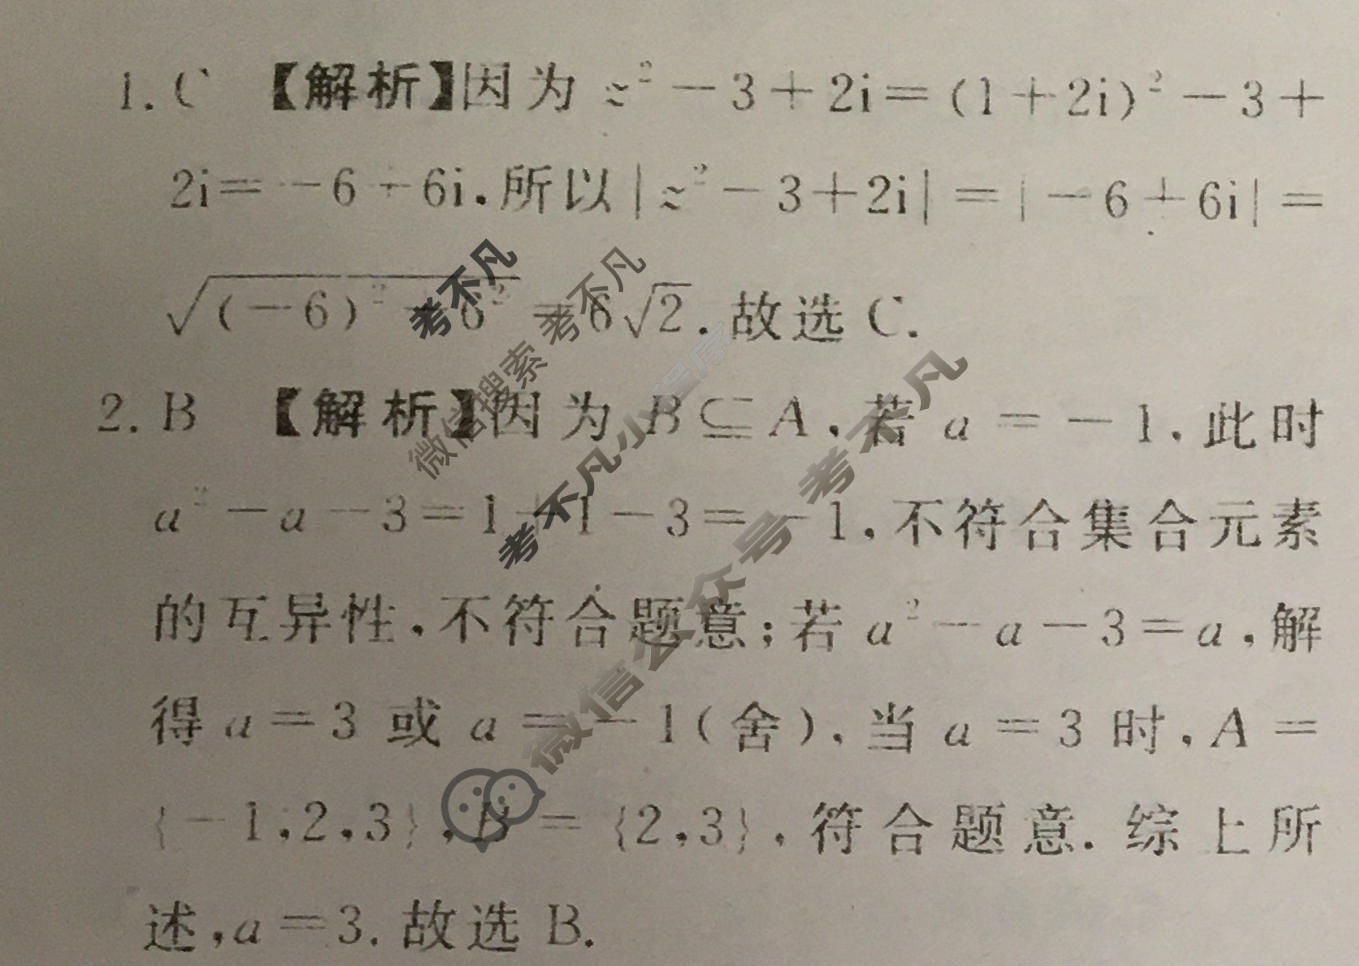 1. C 【解析】因为 z²－3＋2i＝(1＋2i)²－3＋
2i＝－6＋6i.所以|z²－3＋2i|＝|－6＋6i|＝
√((－6)²＋6²)＝6√2.故选 C.
2. B 【解析】因为 B⊆A,若 a＝－1,此时
a²－a－3＝1＋1－3＝－1,不符合集合元素
的互异性,不符合题意;若 a²－a－3＝a,解
得 a＝3 或 a＝－1(舍),当 a＝3 时,A＝
{－1,2,3},B＝{2,3},符合题意.综上所
述,a＝3.故选 B.
考不凡
微信搜索 考不凡
考不凡小程序
微信公众号 考不凡